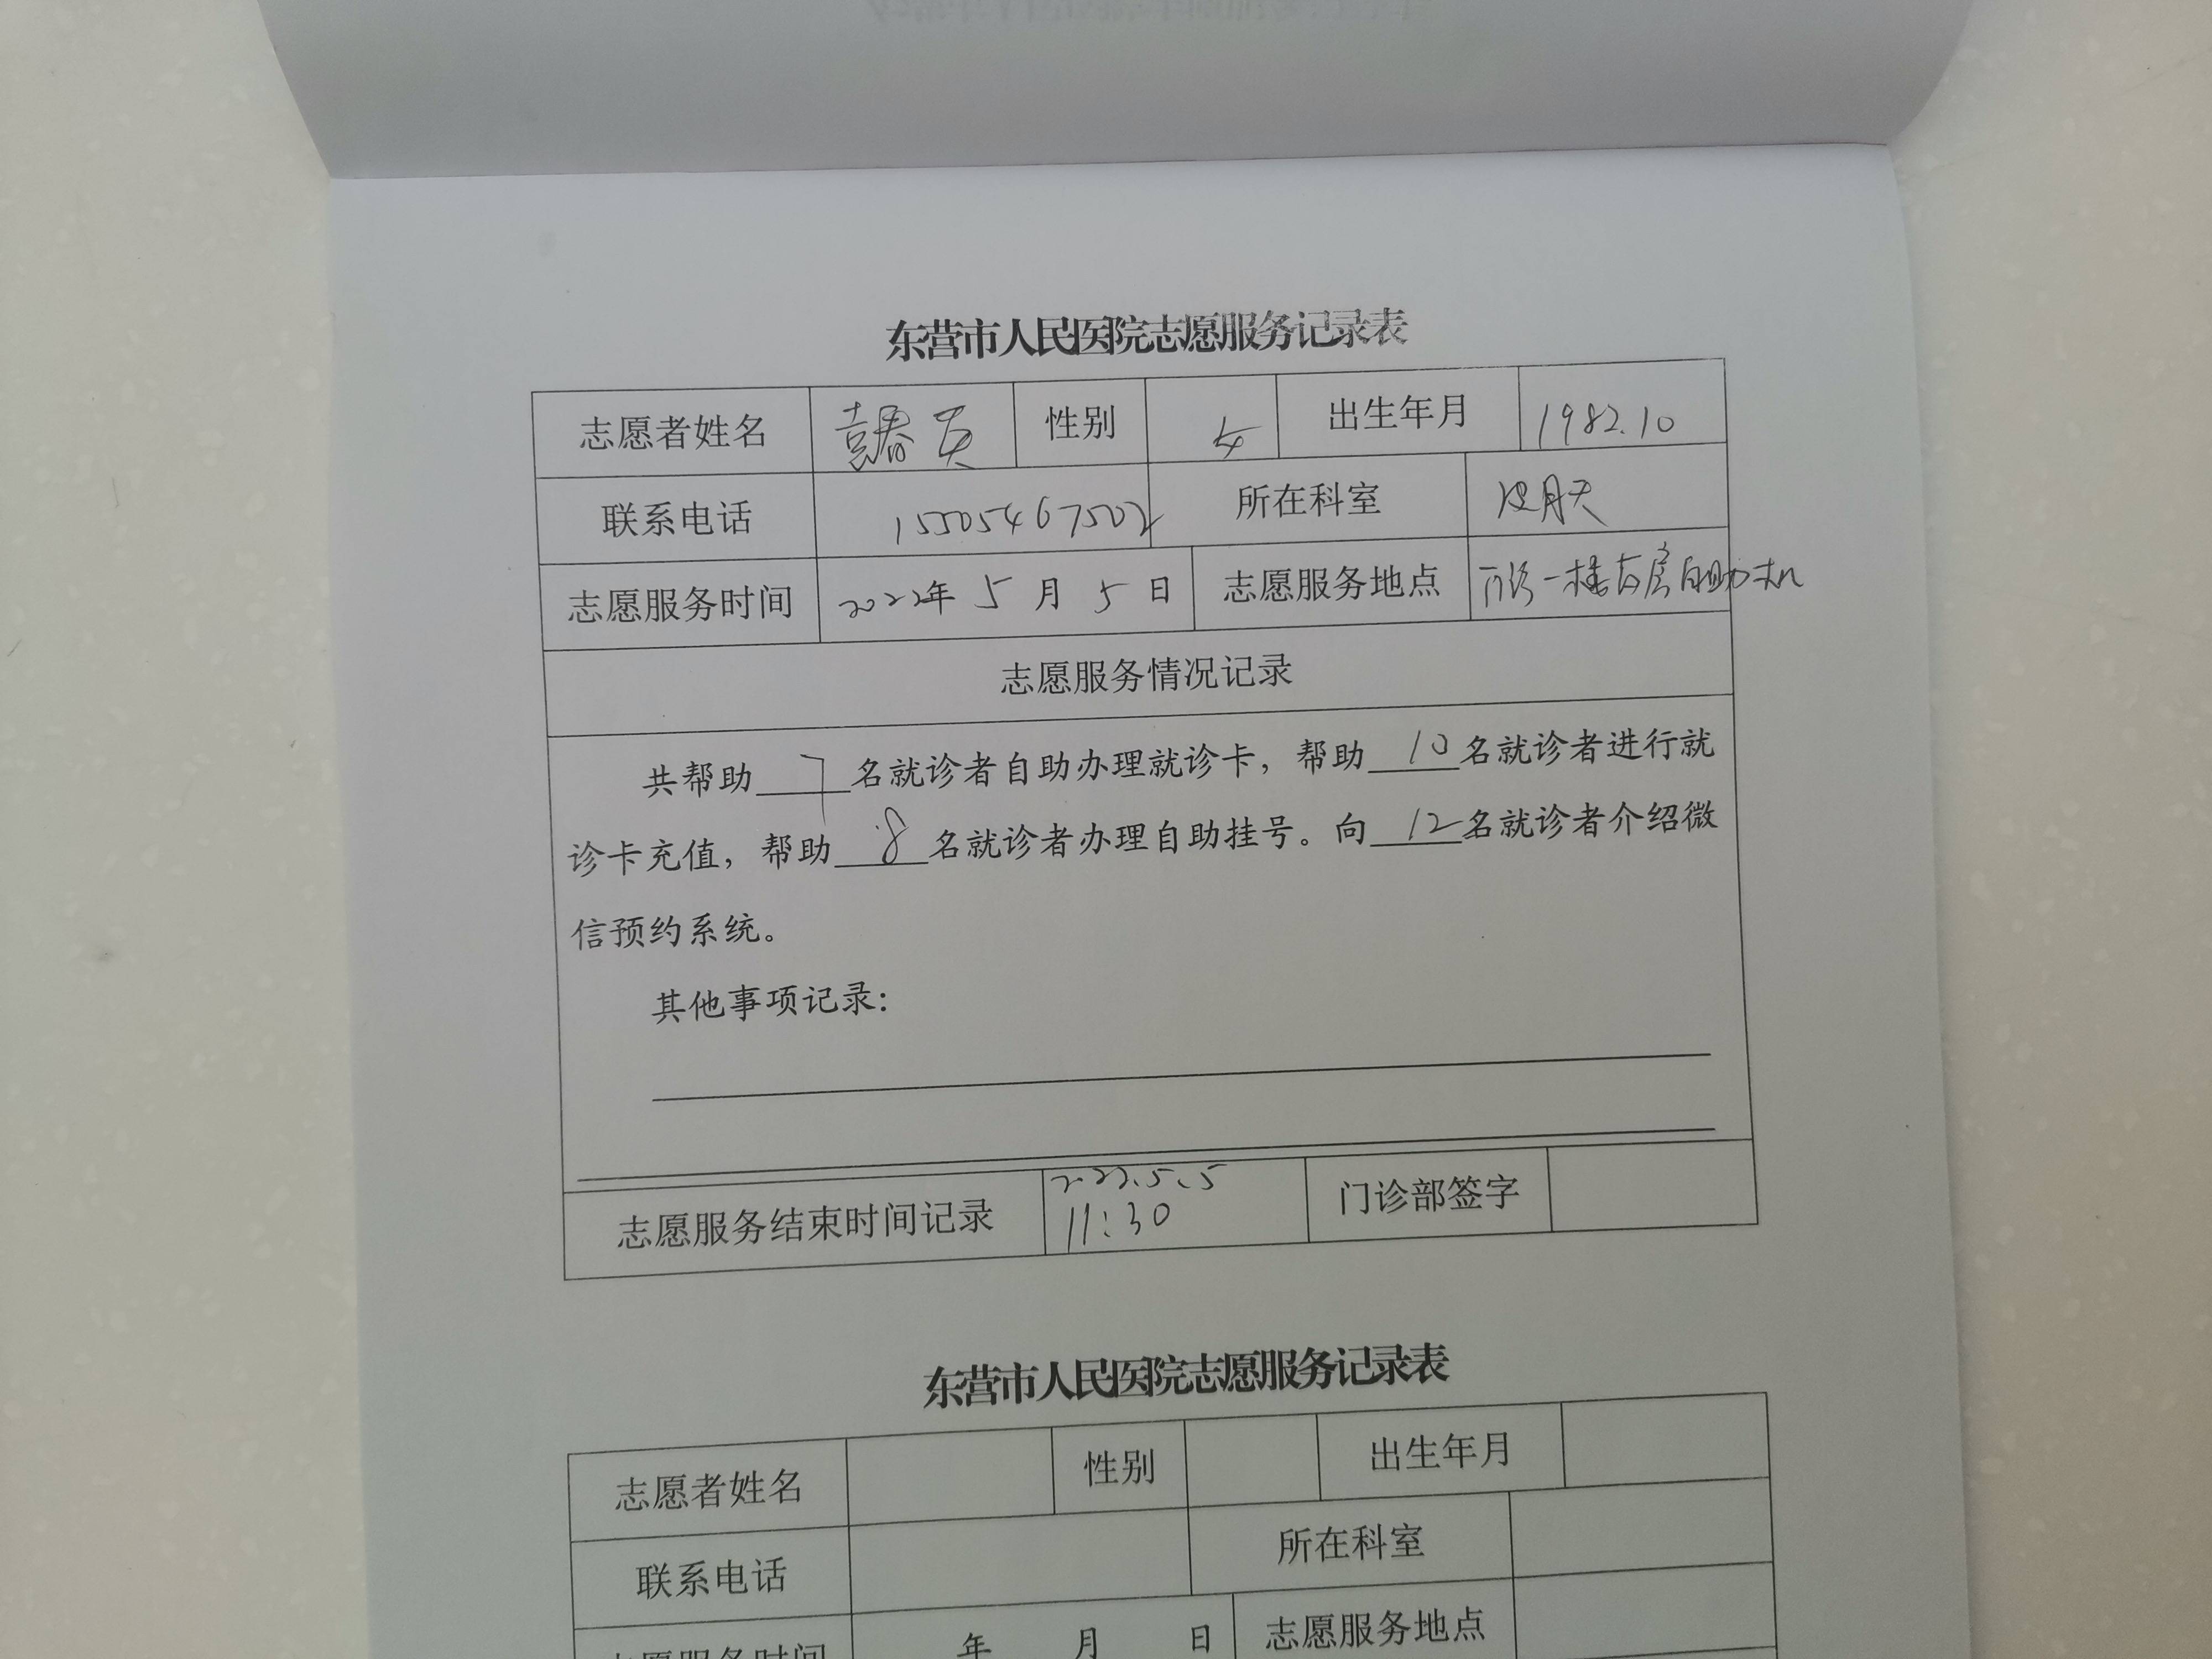 东营市人民医院志愿服务记录表
志愿者姓名 春英 性别 女 出生年月 1982.10
联系电话 15505467502 所在科室 皮肤
志愿服务时间 2022年 5 月 5 日 志愿服务地点 门诊一楼药房自助机
志愿服务情况记录
共帮助 7 名就诊者自助办理就诊卡，帮助 10 名就诊者进行就
诊卡充值，帮助 8 名就诊者办理自助挂号。向 12 名就诊者介绍微
信预约系统。
其他事项记录：
志愿服务结束时间记录 2022.5.5 11:30 门诊部签字
东营市人民医院志愿服务记录表
志愿者姓名 性别 出生年月
联系电话 所在科室
志愿服务时间 年 月 日 志愿服务地点